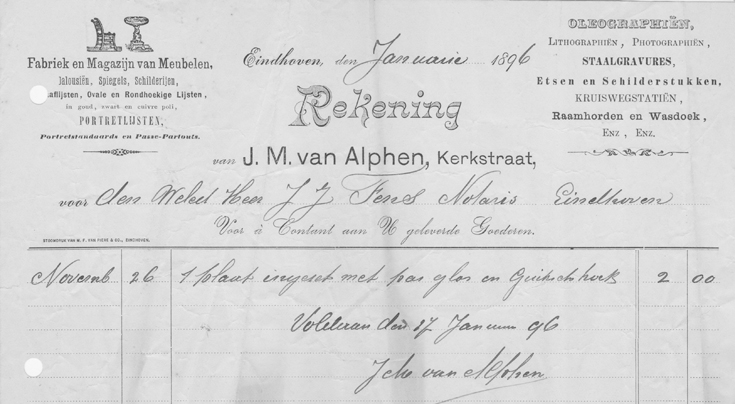 Fabriek en Magazijn van Meubelen,
Jalousiën, Spiegels, Schilderijen,
aflijsten, Ovale en Rondhoekige Lijsten,
in goud, zwart en cuivre poli,
PORTRETLIJSTEN,
Portretstandaards en Passe-Partouts.
Eindhoven, den Januarie 1896
Rekening
van J. M. van Alphen, Kerkstraat,
OLEOGRAPHIËN,
LITHOGRAPHIËN, PHOTOGRAPHIËN,
STAALGRAVURES,
Etsen en Schilderstukken,
KRUISWEGSTATIËN,
Raamhorden en Wasdoek,
ENZ, ENZ.
voor den Heer J J Notaris Eindhoven
Voor à Contant aan U geleverde Goederen.
STEENDRUK VAN M. F. VAN PIERE & CO., EINDHOVEN.
Novemb 26 1 plaat ingeset met pas glas en 2 00
Voldaan den 17 Januari 96
van Alphen